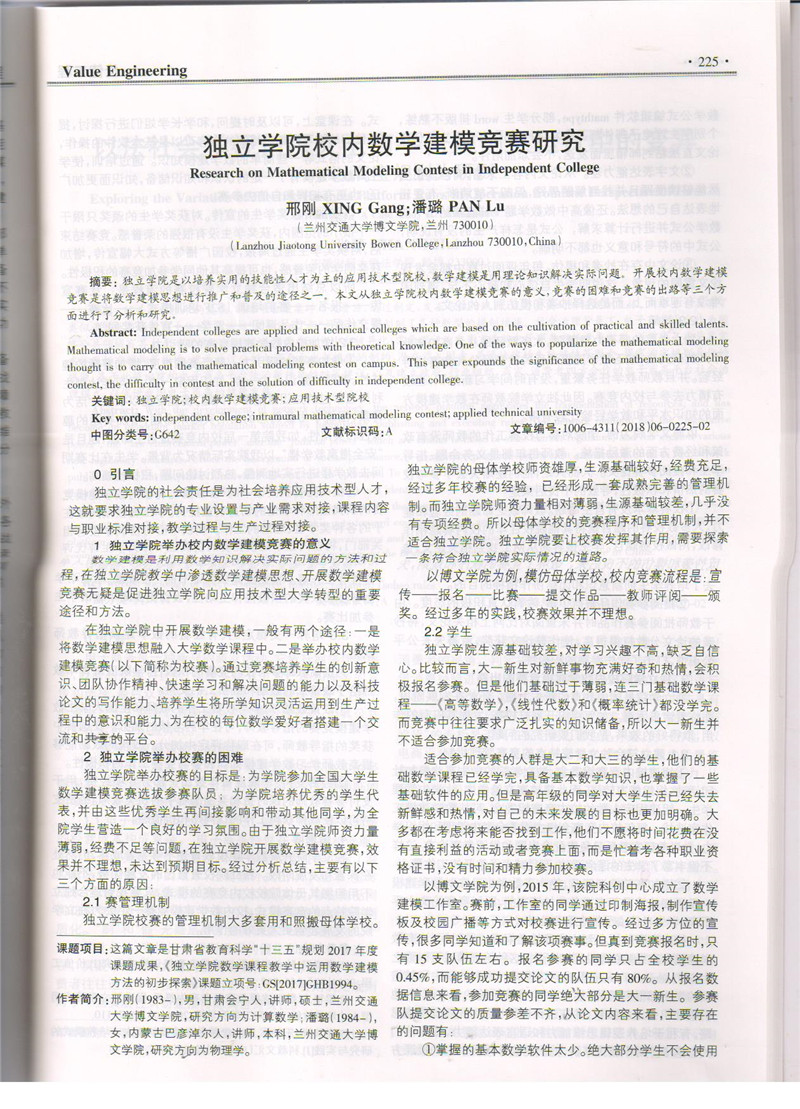 Value Engineering
· 225 ·
独立学院校内数学建模竞赛研究
Research on Mathematical Modeling Contest in Independent College
邢刚 XING Gang;潘璐 PAN Lu
(兰州交通大学博文学院,兰州 730010)
(Lanzhou Jiaotong University Bowen College, Lanzhou 730010, China)
摘要: 独立学院是以培养实用的技能性人才为主的应用技术型院校,数学建模是用理论知识解决实际问题。开展校内数学建模
竞赛是将数学建模思想进行推广和普及的途径之一。本文从独立学院校内数学建模竞赛的意义,竞赛的困难和竞赛的出路等三个方
面进行了分析和研究。
Abstract: Independent colleges are applied and technical colleges which are based on the cultivation of practical and skilled talents.
Mathematical modeling is to solve practical problems with theoretical knowledge. One of the ways to popularize the mathematical modeling
thought is to carry out the mathematical modeling contest on campus. This paper expounds the significance of the mathematical modeling
contest, the difficulty in contest and the solution of difficulty in independent college.
关键词: 独立学院;校内数学建模竞赛;应用技术型院校
Key words: independent college; intramural mathematical modeling contest; applied technical university
中图分类号:G642 文献标识码:A 文章编号:1006-4311(2018)06-0225-02
0 引言
独立学院的社会责任是为社会培养应用技术型人才,
这就要求独立学院的专业设置与产业需求对接,课程内容
与职业标准对接,教学过程与生产过程对接。
1 独立学院举办校内数学建模竞赛的意义
数学建模是利用数学知识解决实际问题的方法和过
程,在独立学院教学中渗透数学建模思想、开展数学建模
竞赛无疑是促进独立学院向应用技术型大学转型的重要
途径和方法。
在独立学院中开展数学建模,一般有两个途径:一是
将数学建模思想融入大学数学课程中。二是举办校内数学
建模竞赛(以下简称为校赛)。通过竞赛培养学生的创新意
识、团队协作精神、快速学习和解决问题的能力以及科技
论文的写作能力、培养学生将所学知识灵活运用到生产过
程中的意识和能力、为在校的每位数学爱好者搭建一个交
流和共享的平台。
2 独立学院举办校赛的困难
独立学院举办校赛的目标是:为学院参加全国大学生
数学建模竞赛选拔参赛队员;为学院培养优秀的学生代
表,并由这些优秀学生再间接影响和带动其他同学,为全
院学生营造一个良好的学习氛围。由于独立学院师资力量
薄弱,经费不足等问题,在独立学院开展数学建模竞赛,效
果并不理想,未达到预期目标。经过分析总结,主要有以下
三个方面的原因:
2.1 赛管理机制
独立学院校赛的管理机制大多套用和照搬母体学校。
课题项目:这篇文章是甘肃省教育科学“十三五”规划 2017 年度
课题成果,《独立学院数学课程教学中运用数学建模
方法的初步探索》课题立项号:GS[2017]GHB1994。
作者简介:邢刚(1983-),男,甘肃会宁人,讲师,硕士,兰州交通
大学博文学院,研究方向为计算数学;潘璐(1984-),
女,内蒙古巴彦淖尔人,讲师,本科,兰州交通大学博
文学院,研究方向为物理学。
独立学院的母体学校师资雄厚,生源基础较好,经费充足,
经过多年校赛的经验,已经形成一套成熟完善的管理机
制。而独立学院师资力量相对薄弱,生源基础较差,几乎没
有专项经费。所以母体学校的竞赛程序和管理机制,并不
适合独立学院。独立学院要让校赛发挥其作用,需要探索
一条符合独立学院实际情况的道路。
以博文学院为例,模仿母体学校,校内竞赛流程是:宣
传——报名——比赛——提交作品——教师评阅——颁
奖。经过多年的实践,校赛效果并不理想。
2.2 学生
独立学院生源基础较差,对学习兴趣不高,缺乏自信
心。比较而言,大一新生对新鲜事物充满好奇和热情,会积
极报名参赛。但是他们基础过于薄弱,连三门基础数学课
程——《高等数学》,《线性代数》和《概率统计》都没学完。
而竞赛中往往要求广泛扎实的知识储备,所以大一新生并
不适合参加竞赛。
适合参加竞赛的人群是大二和大三的学生,他们的基
础数学课程已经学完,具备基本数学知识,也掌握了一些
基础软件的应用。但是高年级的同学对大学生活已经失去
新鲜感和热情,对自己的未来发展的目标也更加明确。大
多都在考虑将来能否找到工作,他们不愿将时间花费在没
有直接利益的活动或者竞赛上面,而是忙着考各种职业资
格证书,没有时间和精力参加校赛。
以博文学院为例,2015 年,该院科创中心成立了数学
建模工作室。赛前,工作室的同学通过印制海报,制作宣传
板及校园广播等方式对校赛进行宣传。经过多方位的宣
传,很多同学知道和了解该项赛事。但真到竞赛报名时,只
有 15 支队伍左右。报名参赛的同学只占全校学生的
0.45%,而能够成功提交论文的队伍只有 80%。从报名数
据信息来看,参加竞赛的同学绝大部分是大一新生。参赛
队提交论文的质量参差不齐,从论文内容来看,主要存在
的问题有:
①掌握的基本数学软件太少。绝大部分学生不会使用